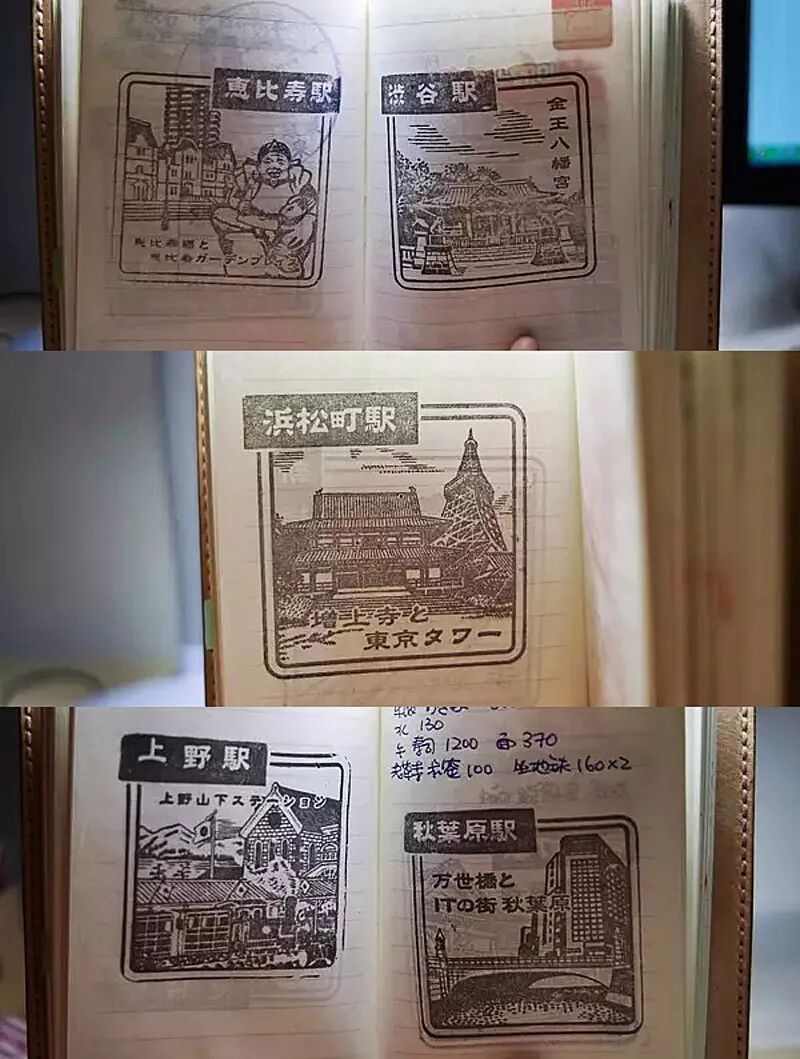 恵比寿駅
恵比寿様と
恵比寿ガーデンプレイス
渋谷駅
金王八幡宮
浜松町駅
増上寺と
東京タワー
上野駅
上野山下ステーション
水 130
1200 面 370
100 坐地铁 160×2
秋葉原駅
万世橋と
ITの街 秋葉原